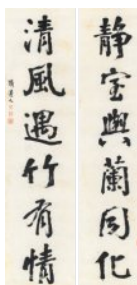 静室與蘭同化
清風遇竹有情